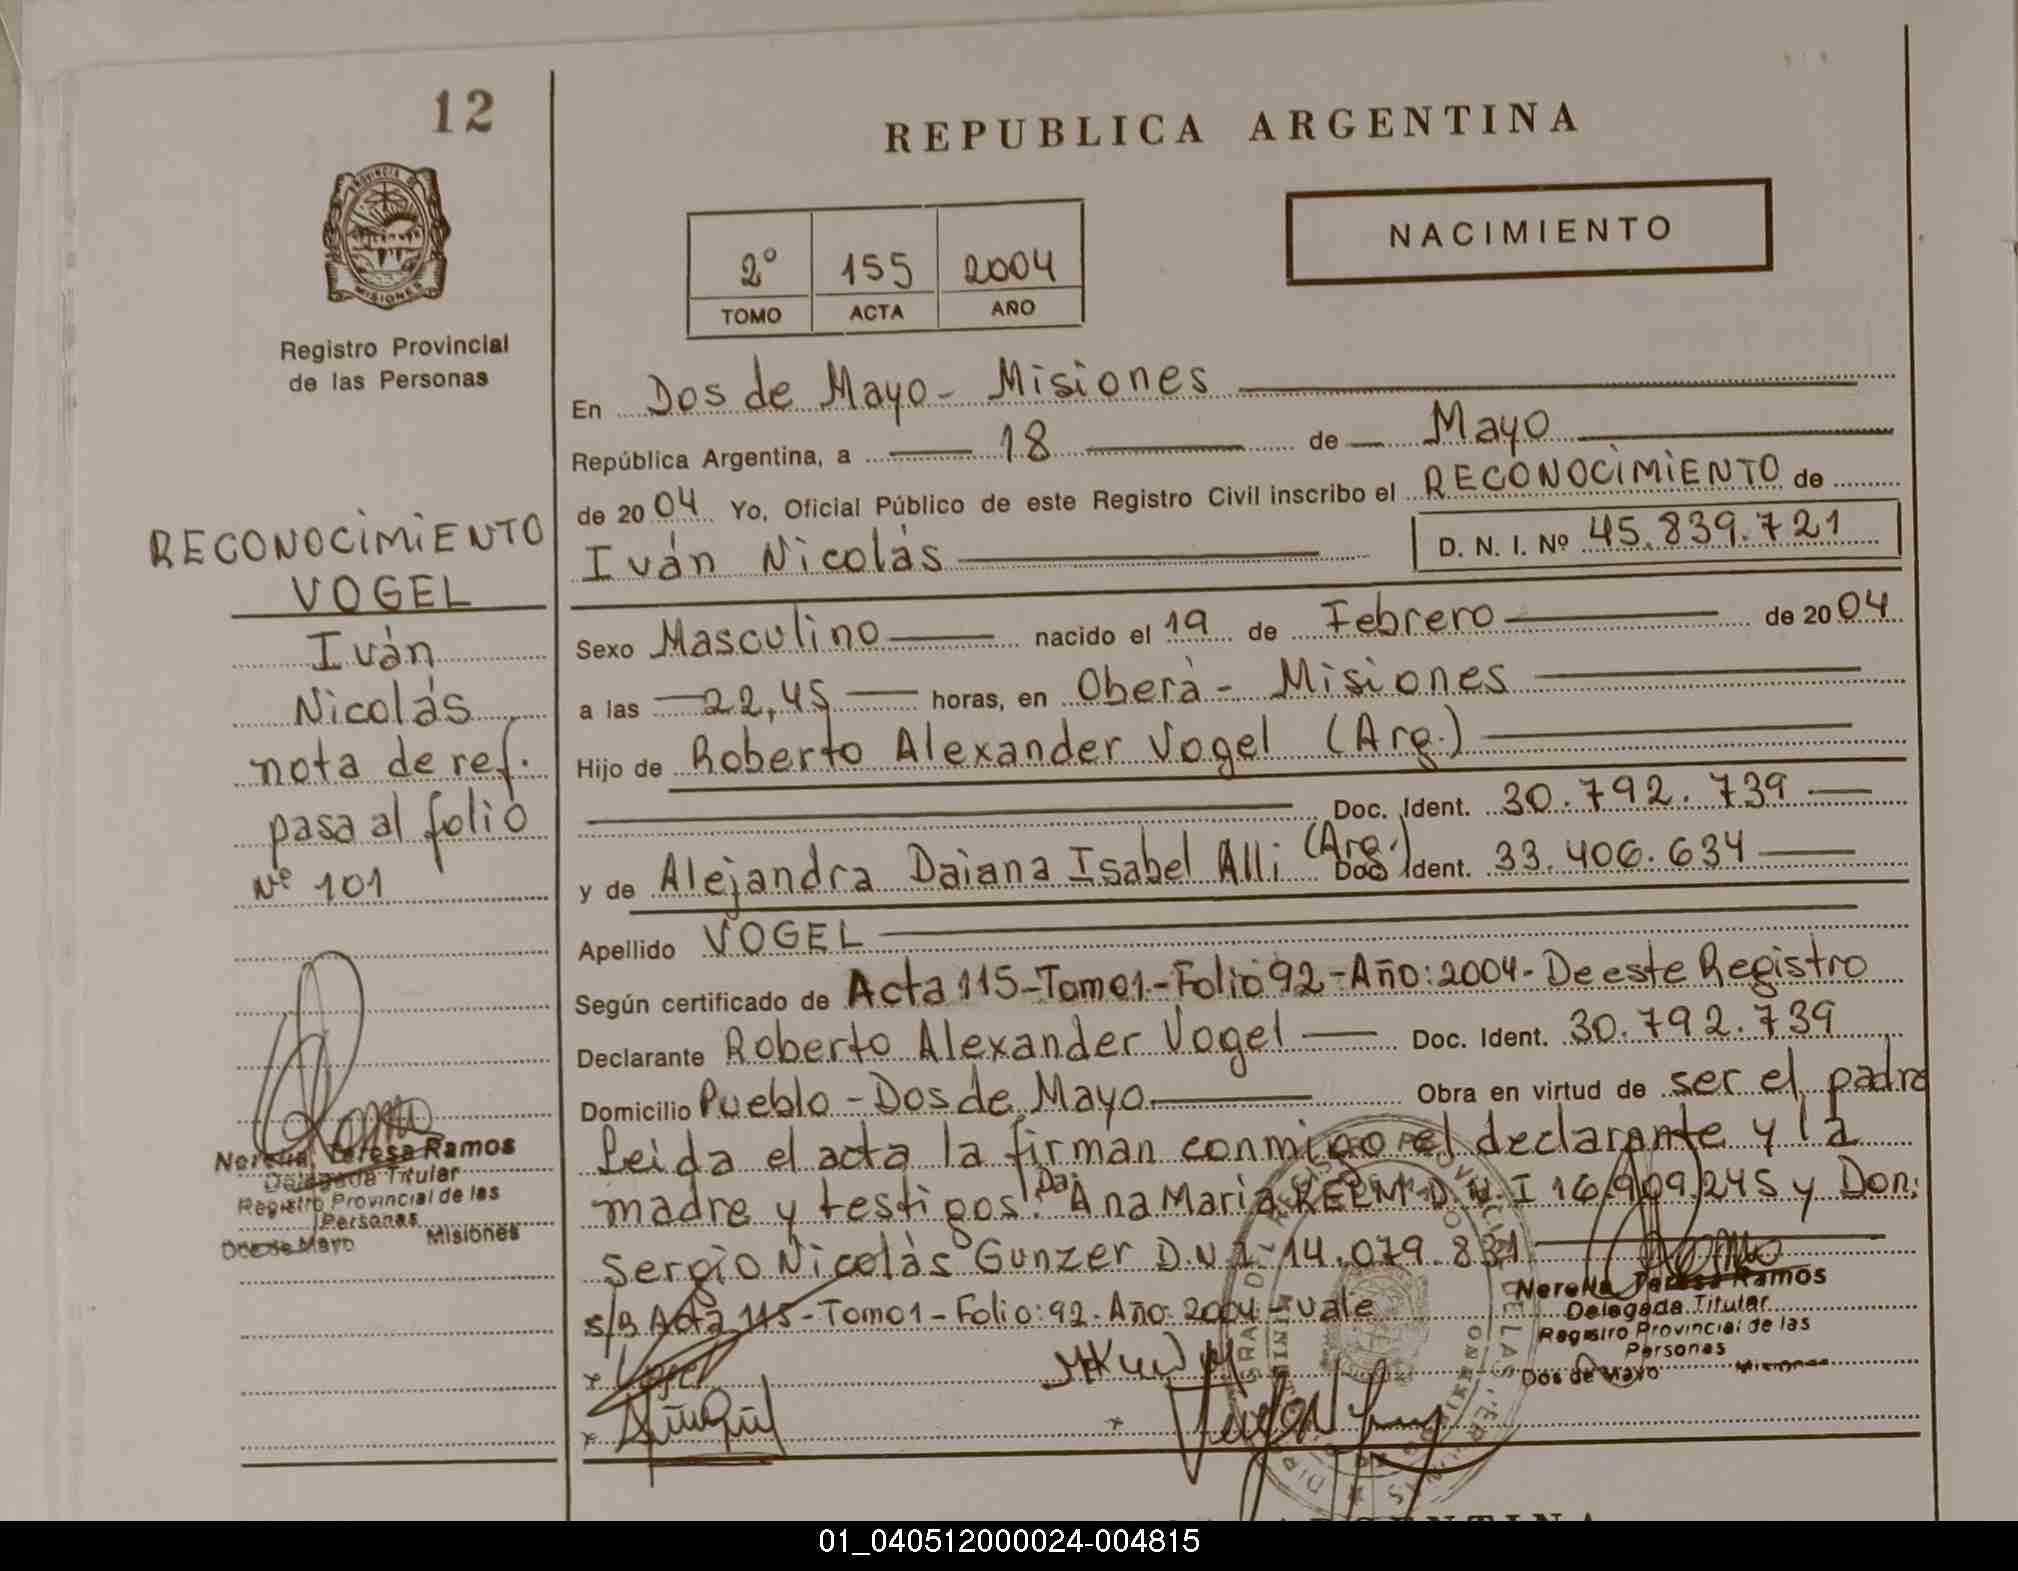 12
REPUBLICA ARGENTINA
PROVINCIA DE
MISIONES
Registro Provincial
de las Personas
2º 155 2004
TOMO ACTA AÑO
NACIMIENTO
RECONOCIMIENTO
VOGEL
Iván
Nicolás
nota de ref.
pasa al folio
Nº 101
Nerelia Teresa Ramos
Delegada Titular
Registro Provincial de las
Personas
Dos de Mayo Misiones
En Dos de Mayo - Misiones
República Argentina, a 18 de Mayo
de 2004 Yo, Oficial Público de este Registro Civil inscribo el RECONOCIMIENTO de
Iván Nicolás D. N. I. Nº 45.839.721
Sexo Masculino nacido el 19 de Febrero de 2004
a las 22,45 horas, en Oberà - Misiones
Hijo de Roberto Alexander Vogel (Arg.)
Doc. Ident. 30.792.739
y de Alejandra Daiana Isabel Alli (Arg.) Doc Ident. 33.406.634
Apellido VOGEL
Según certificado de Acta 115-Tomo1.-Folio 92-Año:2004- De este Registro
Declarante Roberto Alexander Vogel Doc. Ident. 30.792.739
Domicilio Pueblo - Dos de Mayo Obra en virtud de ser el padre
Leida el acta la firman conmigo el declarante y la
madre y testigos: Da Ana Maria D.N.I 16.909.245 y Don:
Sergio Nicolàs Gunzer D.N.I. 14.079.831
s/b Acta 115-Tomo1-Folio:92-Año:2004-vale
Nerelia Teresa Ramos
Delegada Titular
Registro Provincial de las
Personas
Dos de Mayo Misiones
01_040512000024-004815